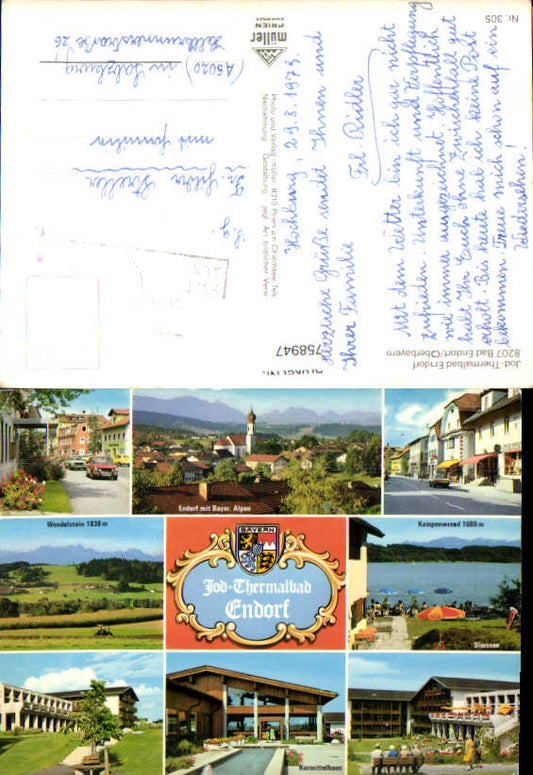 Höchberg, 29.8.1973.
Herzliche Grüße sendet Ihnen und
Ihrer Familie
Frl. Riedler
Mit dem Wetter bin ich gar nicht
zufrieden. Unterkunft und Verpflegung
wie immer ausgezeichnet. Hoffentlich
habt Ihr Euch ohne Zwischenfall gut
erholt. Bis heute hab ich keine Post
bekommen. Freue mich schon auf ein
Wiedersehen!
Jod-Thermalbad Endorf
8207 Bad Endorf/Oberbayern
758947
müller
PRIEN
Photo und Verlag müller 8210 Prien am Chiemsee Tel.
Nachahmung
Nr. 305
mit Familie
(A5020) in Salzburg
Hellbrunnerstraße 26
Endorf mit Bayer. Alpen
Wendelstein 1838 m
Kampenwand 1669 m
BAYERN
Jod-Thermalbad
Endorf
Simssee
Kurmittelhaus